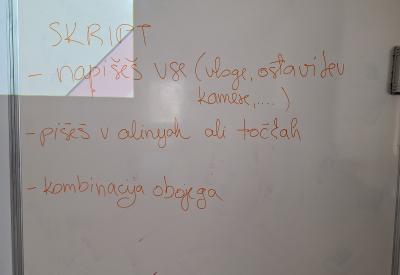 SKRIPT
- napišeš vse (vloge, postavitev
kamere,....)
- pišeš v alinejah ali točkah
- kombinacija obojega